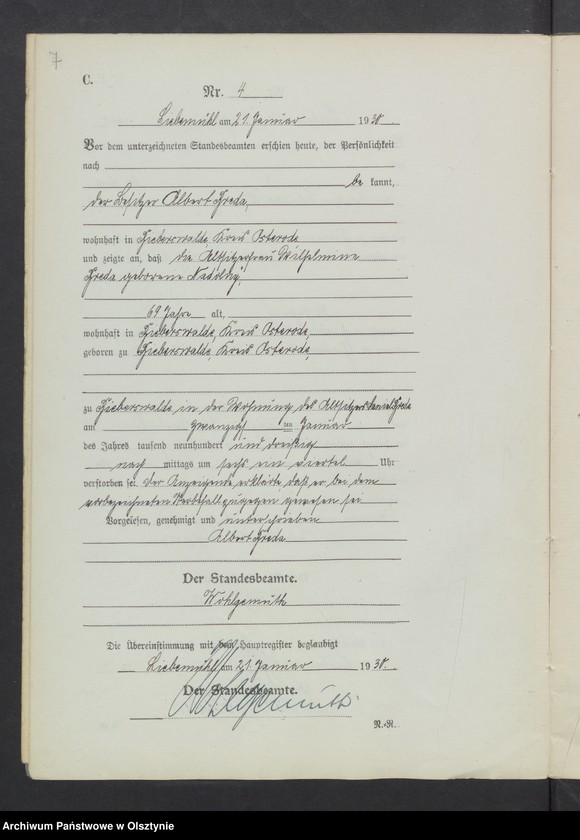 7
C.
Nr. 4
Liebemühl am 21. Januar 1930.
Vor dem unterzeichneten Standesbeamten erschien heute, der Persönlichkeit
nach
be kannt,
der Besitzer Albert Greda,
wohnhaft in Bieberswalde, Kreis Osterode
und zeigte an, daß die Altsitzerfrau Wilhelmine
Greda geborene
69 Jahre alt,
wohnhaft in Bieberswalde, Kreis Osterode,
geboren zu Bieberswalde, Kreis Osterode,
zu Bieberswalde in der Wohnung des Altsitzers Daniel Greda
am zwanzigsten Januar
des Jahres tausend neunhundert und dreißig
nach mittags um sechs ein viertel Uhr
verstorben sei. Der Anzeigende erklärte, daß er bei dem
vorbezeichneten Sterbefall zugegen gewesen sei
Vorgelesen, genehmigt und unterschrieben
Albert Greda
Der Standesbeamte.
Wohlgemuth
Die Übereinstimmung mit dem Hauptregister beglaubigt
Liebemühl am 21. Januar 1930.
Der Standesbeamte.
Wohlgemuth
N.-R.
Archiwum Państwowe w Olsztynie